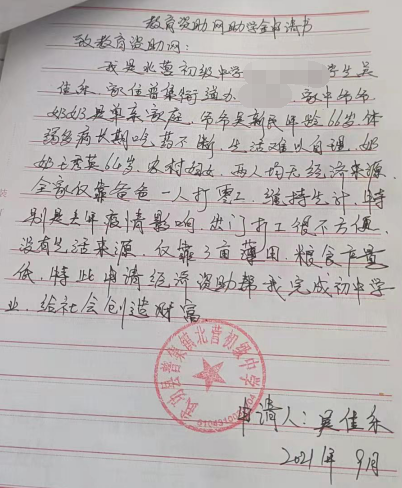 教育资助网助学金申请书
致教育资助网:
我是北营初级中学 学生吴
佳乐 家住普集街道办 家中爷爷
奶奶是单亲家庭. 爷爷吴新民年龄66岁体
弱多病长期吃药不断 生活难以自理. 奶
奶 秀英66岁. 农村妇女. 两人均无经济来源.
全家仅靠爸爸一人打零工. 维持生计. 特
别是去年疫情影响. 出门打工很不方便.
没有生活来源. 仅靠3亩薄田. 粮食产量
低. 特此申请经济资助帮我完成初中学
业. 给社会创造财富.
武功县普集镇北营初级中学
申请人: 吴佳乐
2021年9月